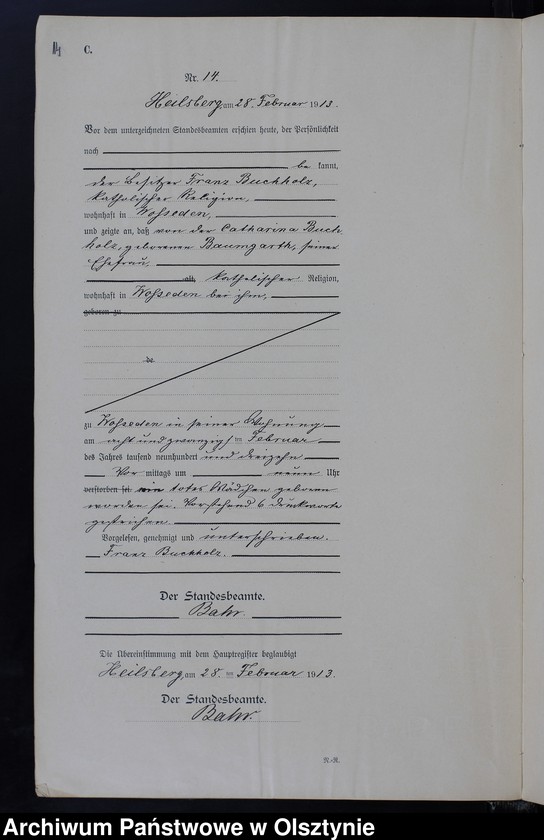 C.
Nr. 14.
Heilsberg, am 28. Februar 1913.
Vor dem unterzeichneten Standesbeamten erschien heute, der Persönlichkeit
nach
be kannt,
der Besitzer Franz Buchholz,
katholischer Religion,
wohnhaft in Wosseden,
und zeigte an, daß von der Catharina Buch
holz, geborenen Baumgarth, seiner
Ehefrau,
alt, katholischer Religion,
wohnhaft in Wosseden bei ihm,
geboren zu
de
zu Wosseden in seiner Wohnung
am acht und zwanzig ten Februar
des Jahres tausend neunhundert und dreizehn
Vor mittags um neun Uhr
verstorben sei ein totes Mädchen geboren
worden sei. Vorstehend 6 Druckworte
gestrichen.
Vorgelesen, genehmigt und unterschrieben.
Franz Buchholz.
Der Standesbeamte.
Bahr.
Die Übereinstimmung mit dem Hauptregister beglaubigt
Heilsberg, am 28. ten Februar 1913.
Der Standesbeamte.
Bahr.
R.-R.
Archiwum Państwowe w Olsztynie